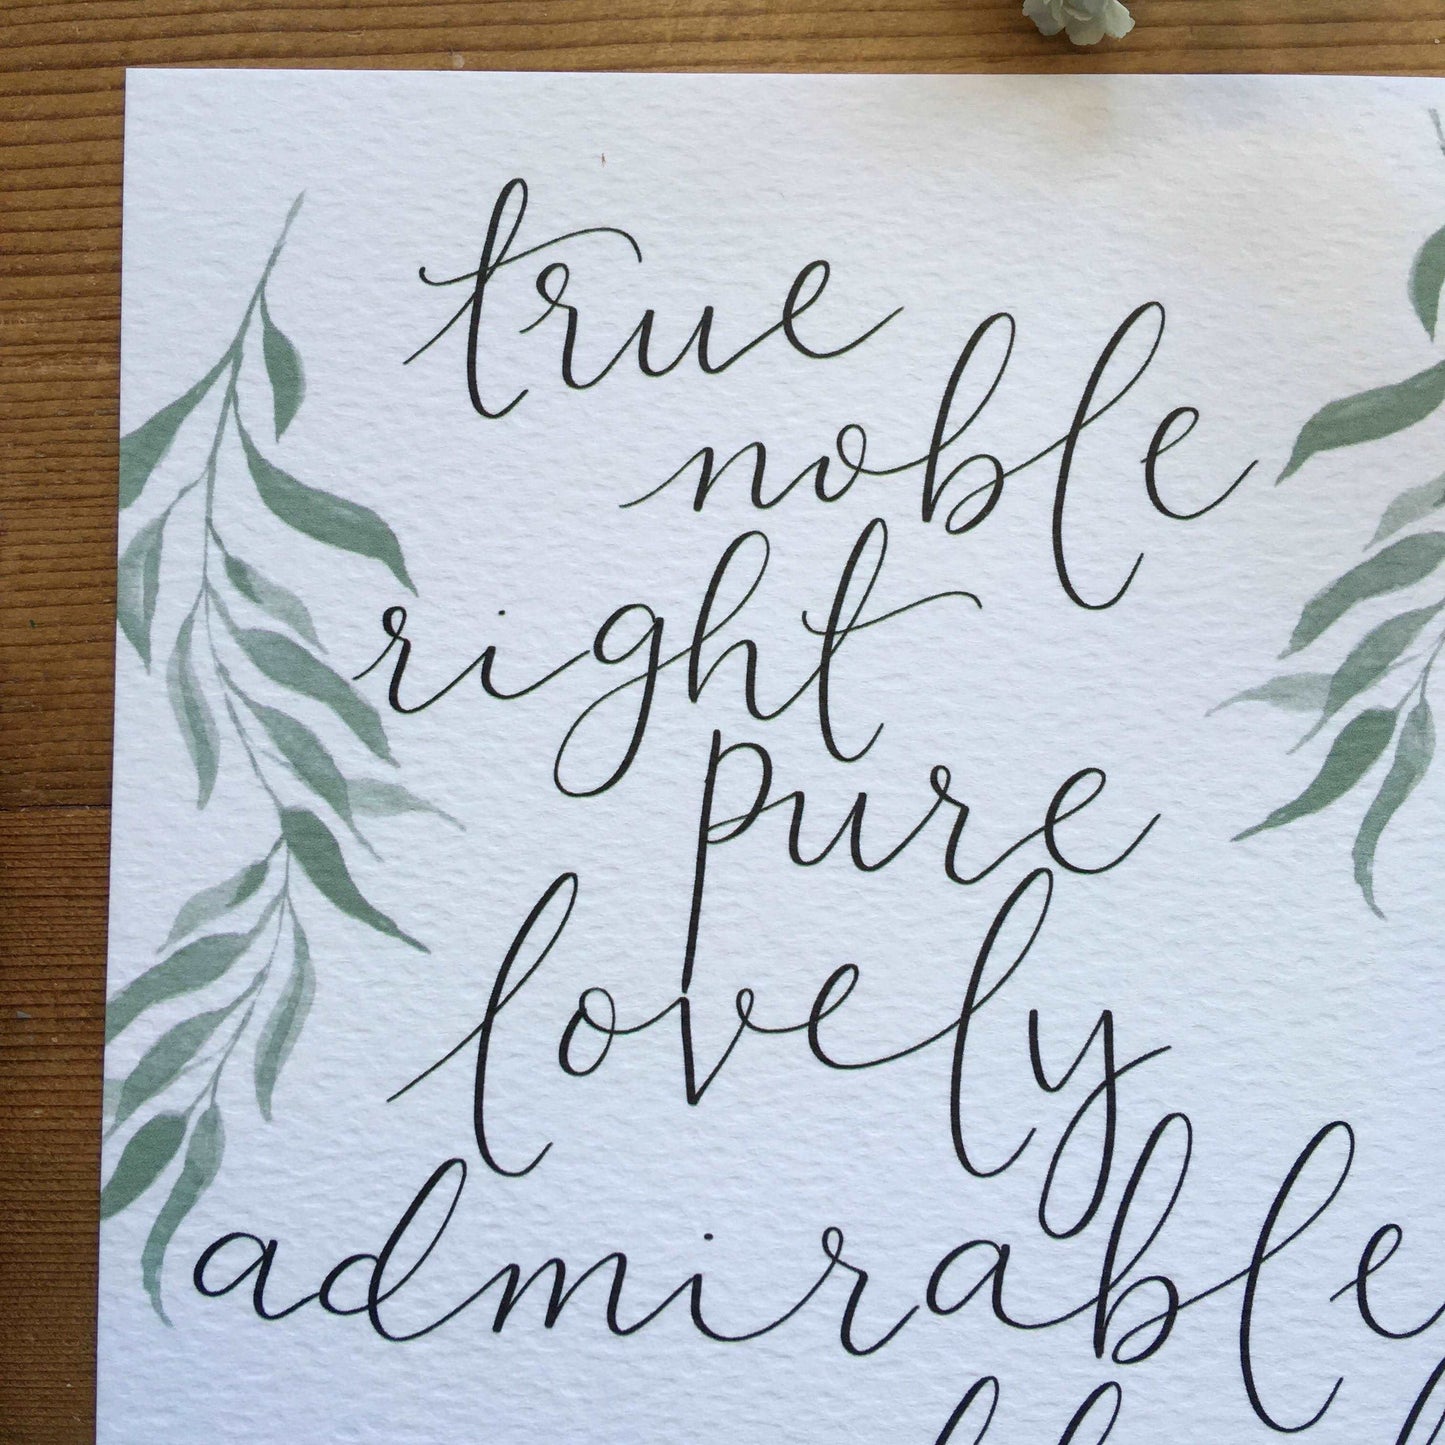 true
noble
right
pure
lovely
admirable